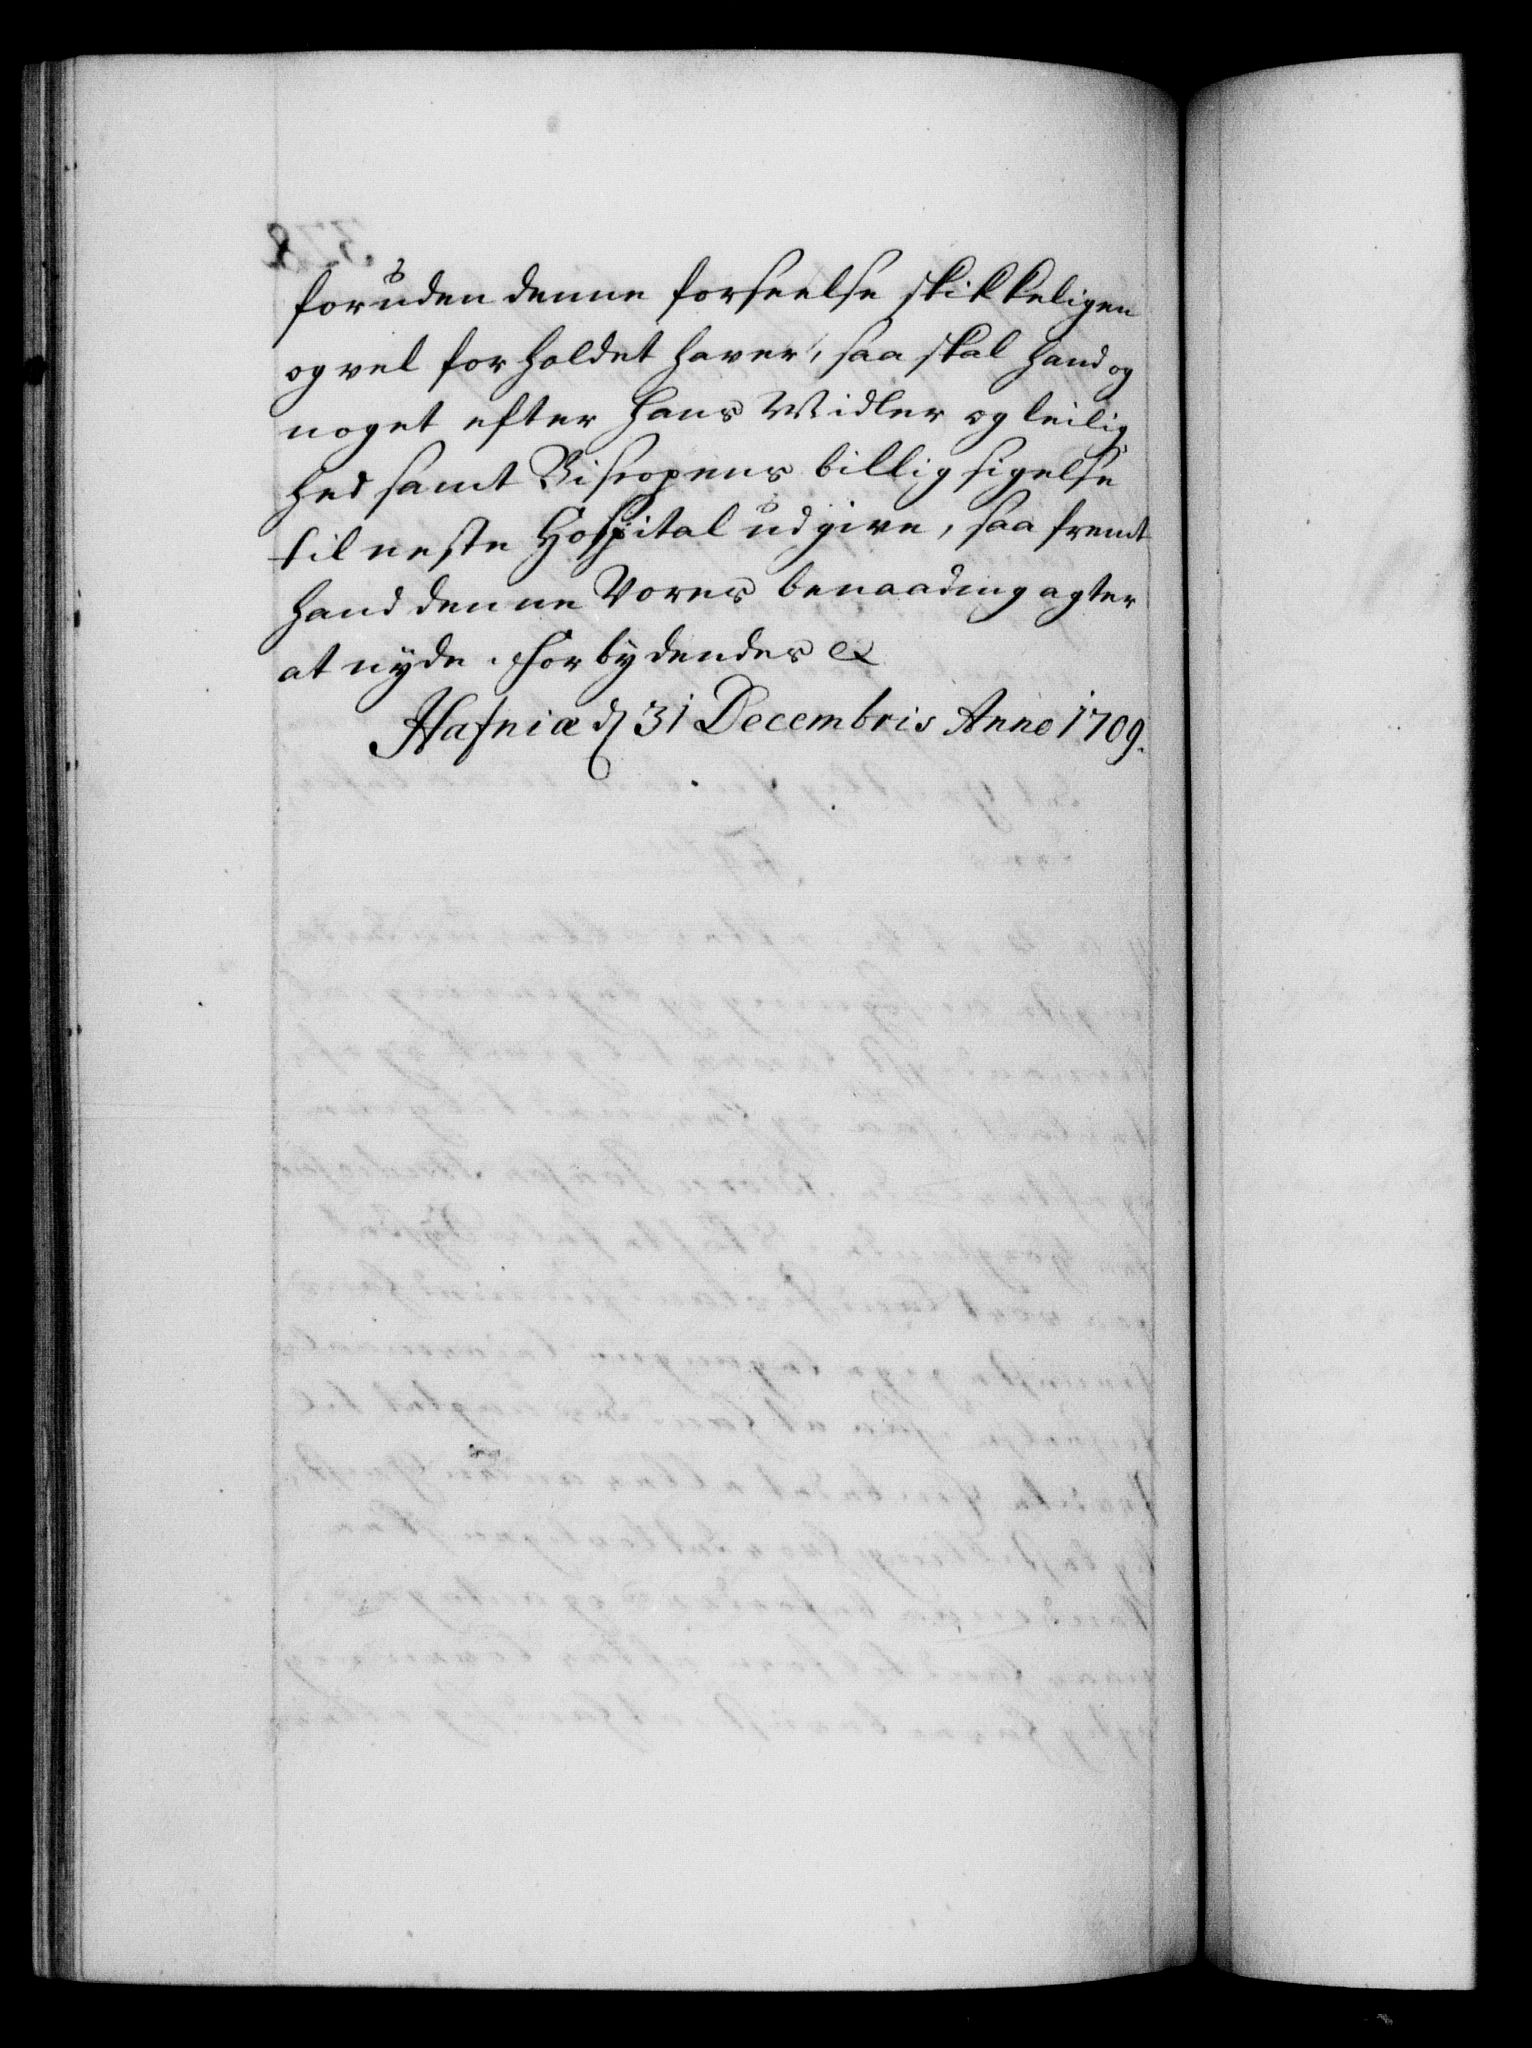 foruden denne forseelse skikkeligen
og vel forholdet haver, saa skal hand og
noget efter hans Midler og leilig
hed samt Biscopens billig sigelse
til neste Hospital udgive, saa fremt
hand denne Vores benaading agter
at nyde. Forbydendes &
Hafniæ d 31 Decembris Anno 1709.